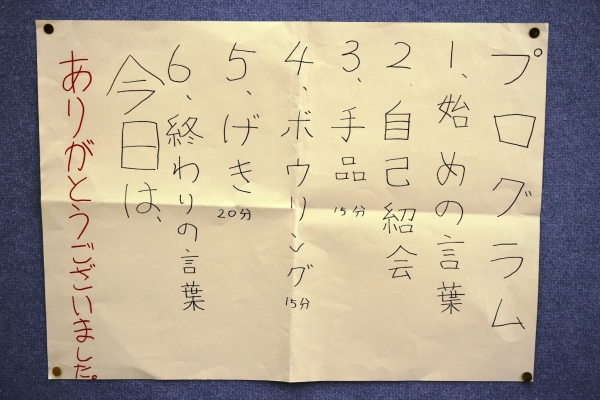 プログラム
1、始めの言葉
2 自己紹会
3、手品 15分
4、ボウリング 15分
5、げき 20分
6、終わりの言葉
今日は、
ありがとうございました。